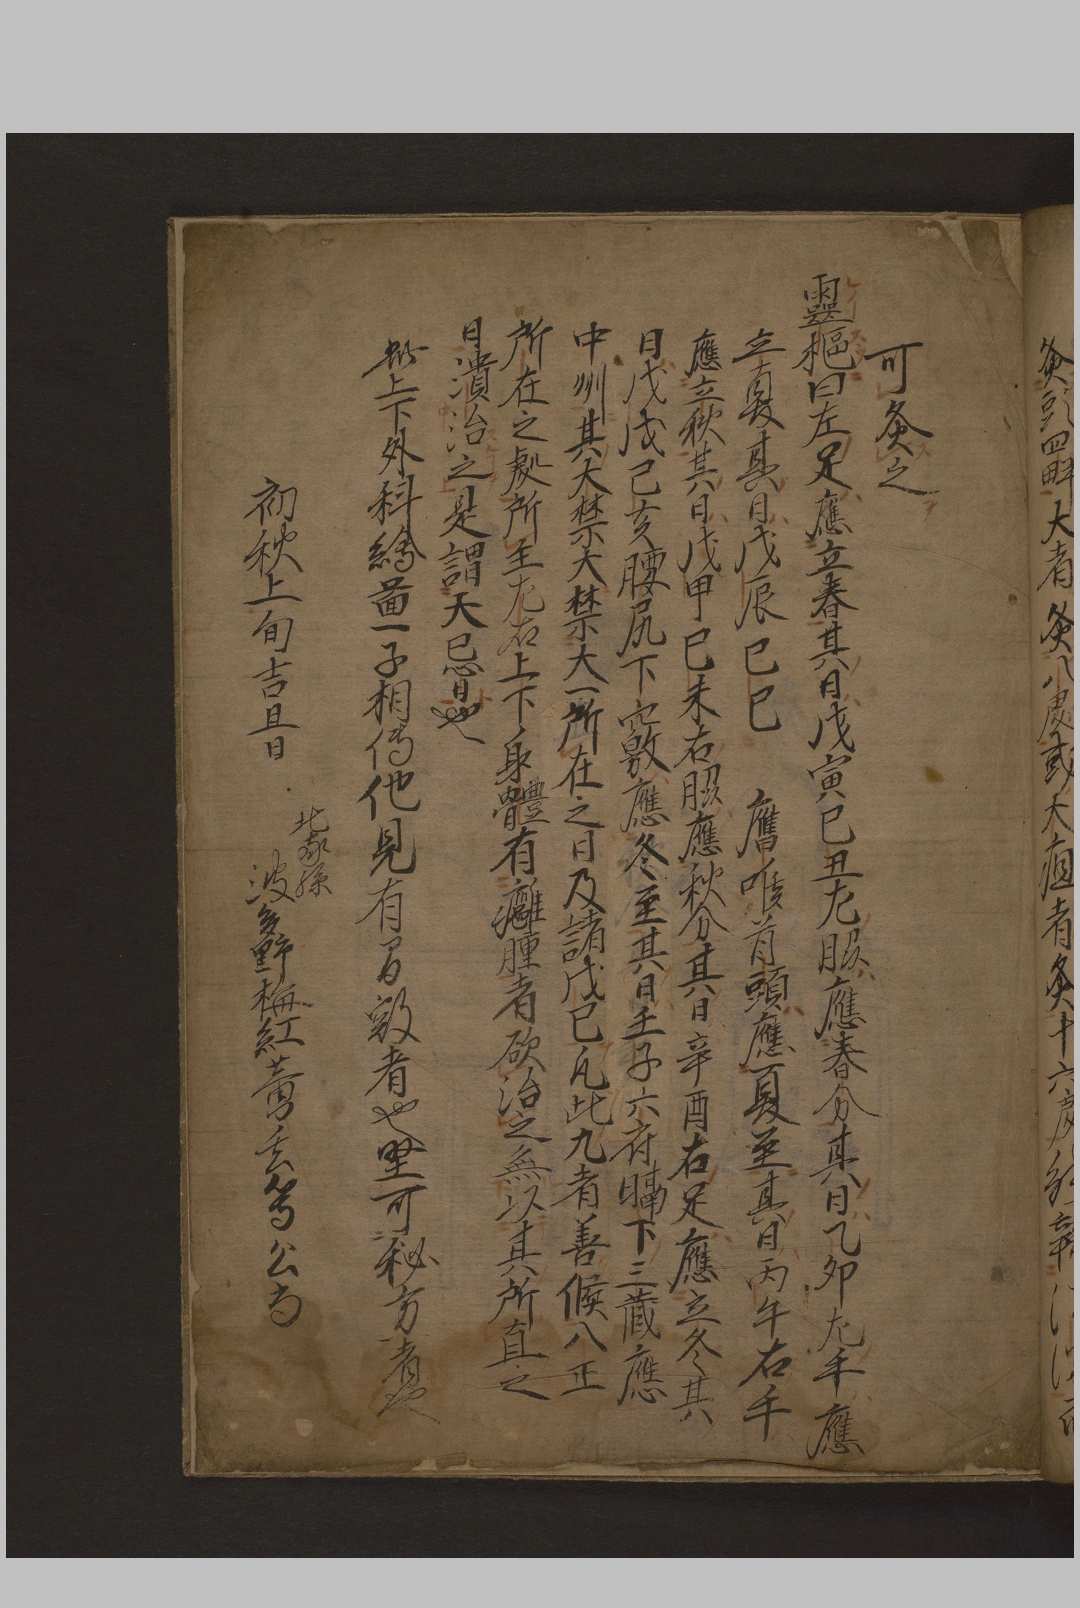 灸頭四畔大者灸八處或大疽者灸十六處
可灸之
靈樞曰左足應立春其日戊寅巳丑左脇應春分其日乙卯左手應
立夏其日戊辰巳巳 膺喉首頭應夏至其日丙午右手
應立秋其日戊申巳未右脇應秋分其日辛酉右足應立冬其
日戊戌己亥腰尻下竅應冬至其日壬子六府膈下三藏應
中州其大禁大禁大一所在之日及諸戊巳凡此九者善候八正
所在之處所主左右上下身體有癰腫者欲治之無以其所直之
日潰治之是謂天忌日也
上下外科繪圖一子相傳他見有
者也
可秘方者也
初秋上旬吉旦日
波多野梅紅